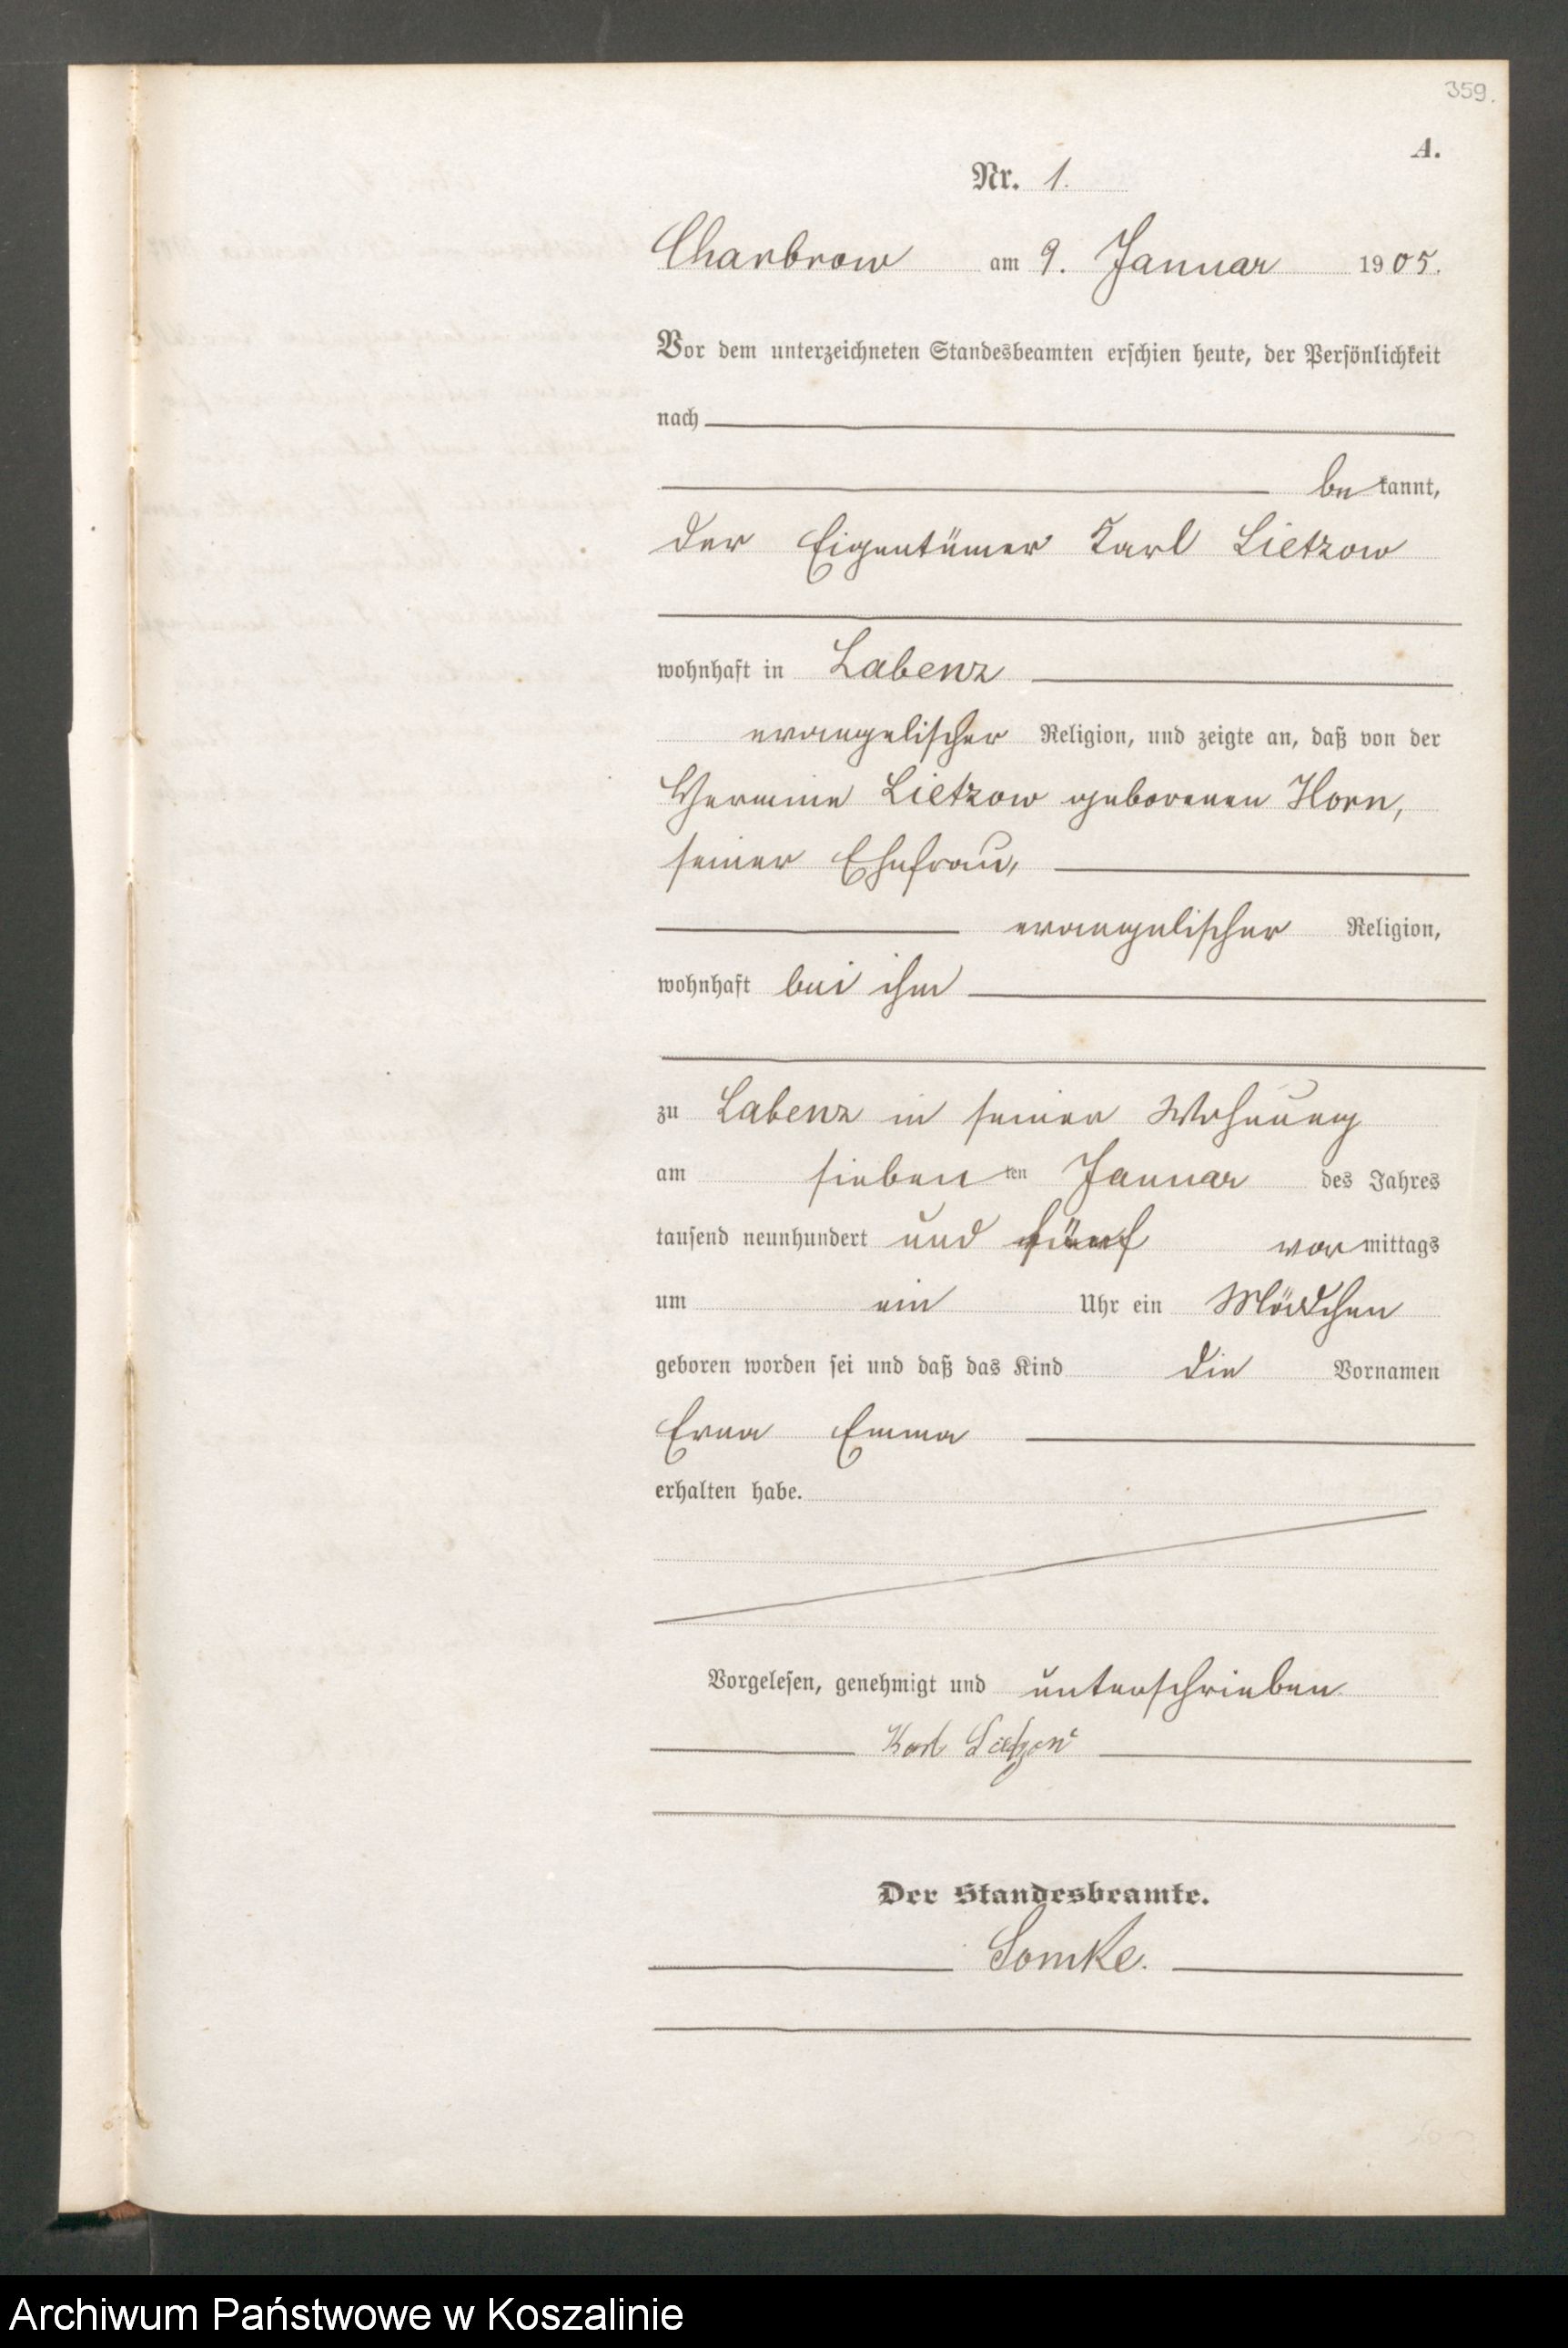 359.
A.
Nr. 1.
Charbrow am 9. Januar 1905.
Vor dem unterzeichneten Standesbeamten erschien heute, der Persönlichkeit
nach
be kannt,
der Eigentümer Karl Lietzow
wohnhaft in Labenz
evangelischer Religion, und zeigte an, daß von der
Hermine Lietzow geborenen Horn,
seiner Ehefrau,
evangelischer Religion,
wohnhaft bei ihm
zu Labenz in seiner Wohnung
am sieben ten Januar des Jahres
tausend neunhundert und fünf vor mittags
um ein Uhr ein Mädchen
geboren worden sei und daß das Kind die Vornamen
Erna Emma
erhalten habe.
Vorgelesen, genehmigt und unterschrieben
Karl Lietzow
Der Standesbeamte.
Somke.
Archiwum Państwowe w Koszalinie